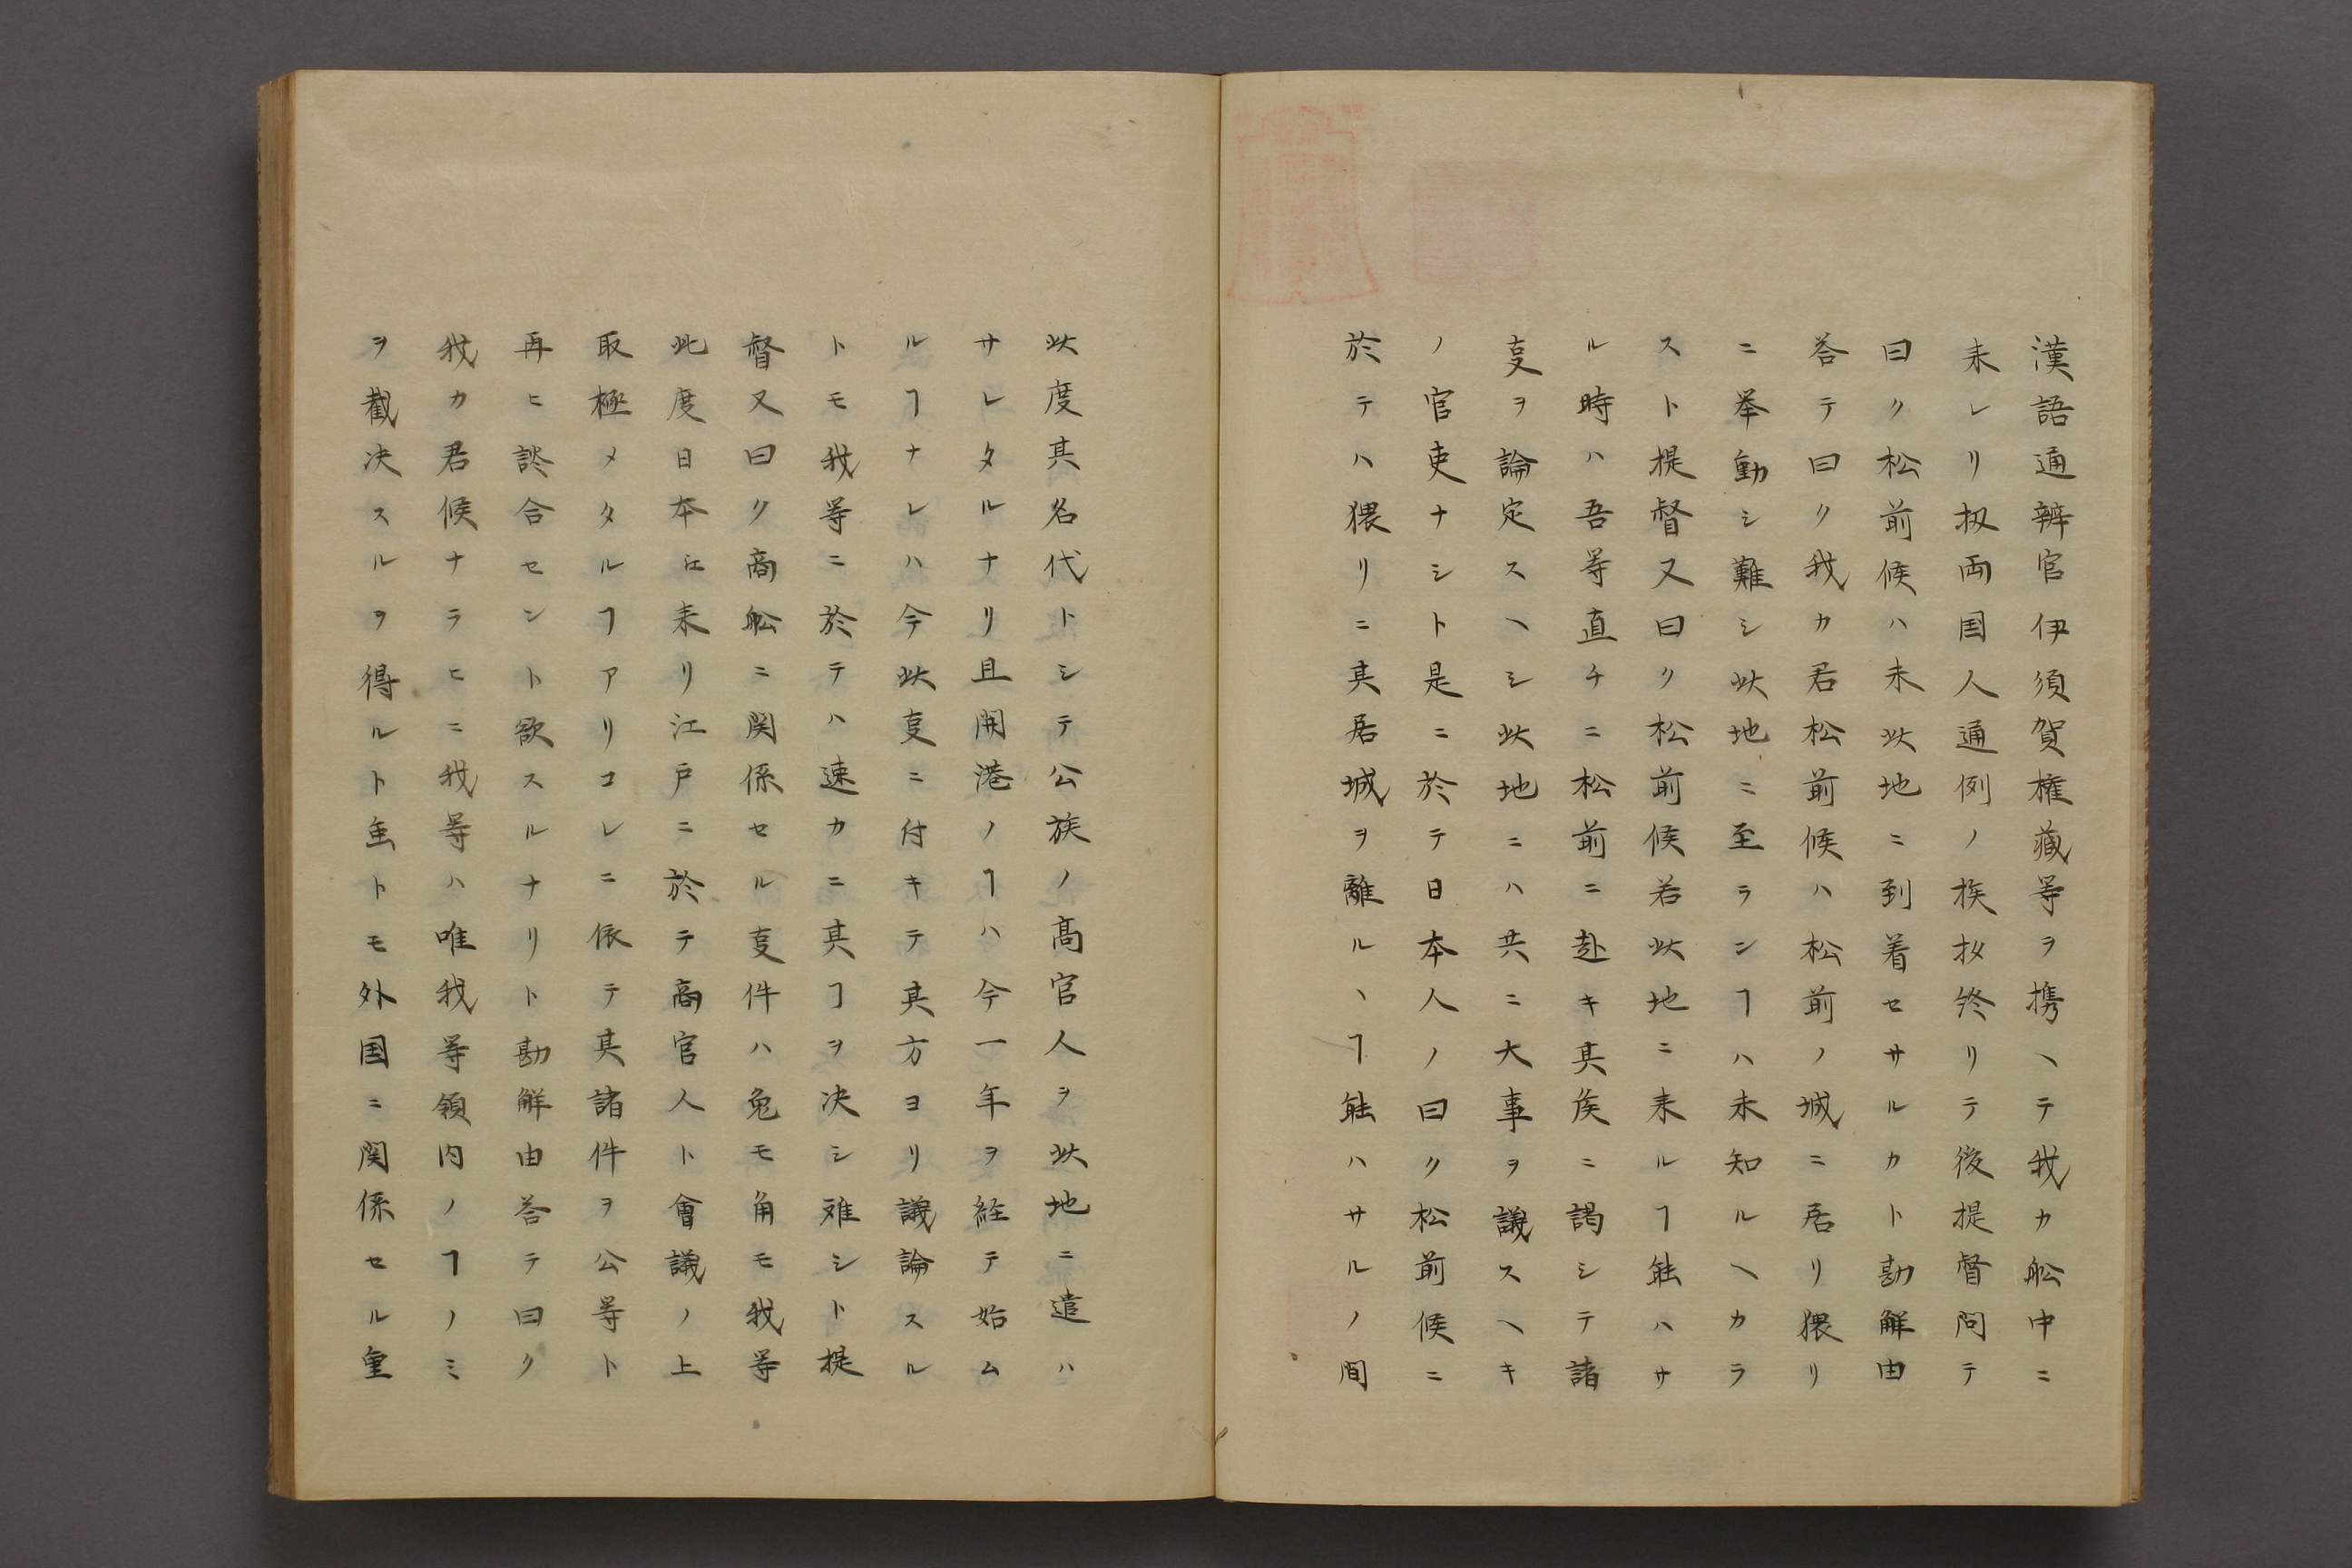 漢語通辨官伊須賀権蔵等ヲ携ヘテ我カ舩中ニ
来レリ扨両国人通例ノ挨拶終リテ後提督問テ
曰ク松前候ハ未此地ニ到着セサルカト勘解由
答テ曰ク我カ君松前候ハ松前ノ城ニ居リ猥リ
ニ挙動シ難シ此地ニ至ランヿハ未知ルヘカラ
スト提督又曰ク松前候若此地ニ来ルヿ能ハサ
ル時ハ吾等直チニ松前ニ赴キ其侯ニ謁シテ諸
叓ヲ論定スヘシ此地ニハ共ニ大事ヲ議スヘキ
ノ官吏ナシト是ニ於テ日本人ノ曰ク松前候ニ
於テハ猥リニ其居城ヲ離ルヽヿ能ハサルノ間
此度其名代トシテ公族ノ高官人ヲ此地ニ遣ハ
サレタルナリ且開港ノヿハ今一年ヲ経テ始ム
ルヿナレハ今此叓ニ付キテ其方ヨリ議論スル
トモ我等ニ於テハ速カニ其ヿヲ决シ难シト提
督又曰ク商舩ニ関係セル叓件ハ兔モ角モ我等
此度日本江来リ江戸ニ於テ高官人ト會議ノ上
取極メタルヿアリコレニ依テ其諸件ヲ公等ト
再ヒ談合セント欲スルナリト勘解由答テ曰ク
我カ君候ナラヒニ我等ハ唯我等領内ノヿノミ
ヲ截决スルヲ得ルト虽トモ外国ニ関係セル重